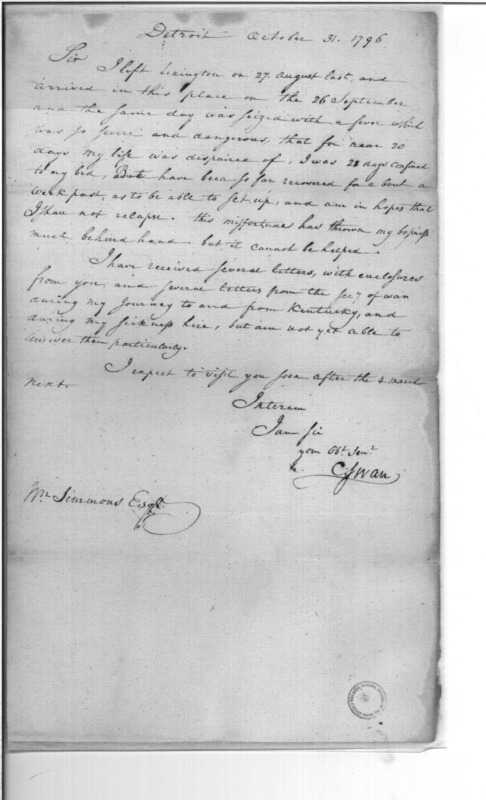 Detroit October 31. 1796
Sir I left Lexington on 27. August last, and
arrived in this place on the 26 September
and the same day was seized with a fever which
was so severe and dangerous, that for near 20
days my life was dispaired of, I was 28 days confined
to my bed, But have been so far recovered for a bout a
week past, as to be able to set, up, and am in hopes that
I shall not relapse. this misfortune has thrown my business
much behind hand. but it cannot be helped.
I have received several letters, with enclosures
from you, and several letters from the Secy of war
during my Journey to and from Kentucky, and
during my sickness here, but am not yet able to
answer them particularly.
I expect to visit you soon after the 4. march
next.
Interim
I am Sir
your Obt. Servt.
C Swan
Wm Simmons Esqr.